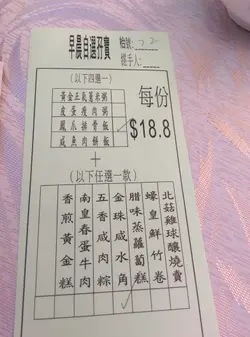 早晨自選孖寶
枱號:22
經手人:
(以下四選一)
黃金正氣薏米粥
皮蛋瘦肉粥
鳳爪排骨飯
咸魚肉餅飯
每份
$18.8
+
(以下任選一款)
北菇雞球釀燒賣
蠔皇鮮竹卷
腊味蒸蘿蔔糕
金珠咸水角
五香咸肉粽
南皇春蛋牛肉
香煎黃金糕